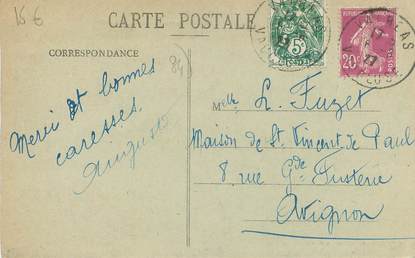 15 €
CARTE POSTALE
CORRESPONDANCE
84
Merci et bonnes
caresses.
Auguste
Mlle L. Fuzet
Maison de St Vincent de Paul
8 rue Gde Fusterie
Avignon
5c
20c
POSTES
27